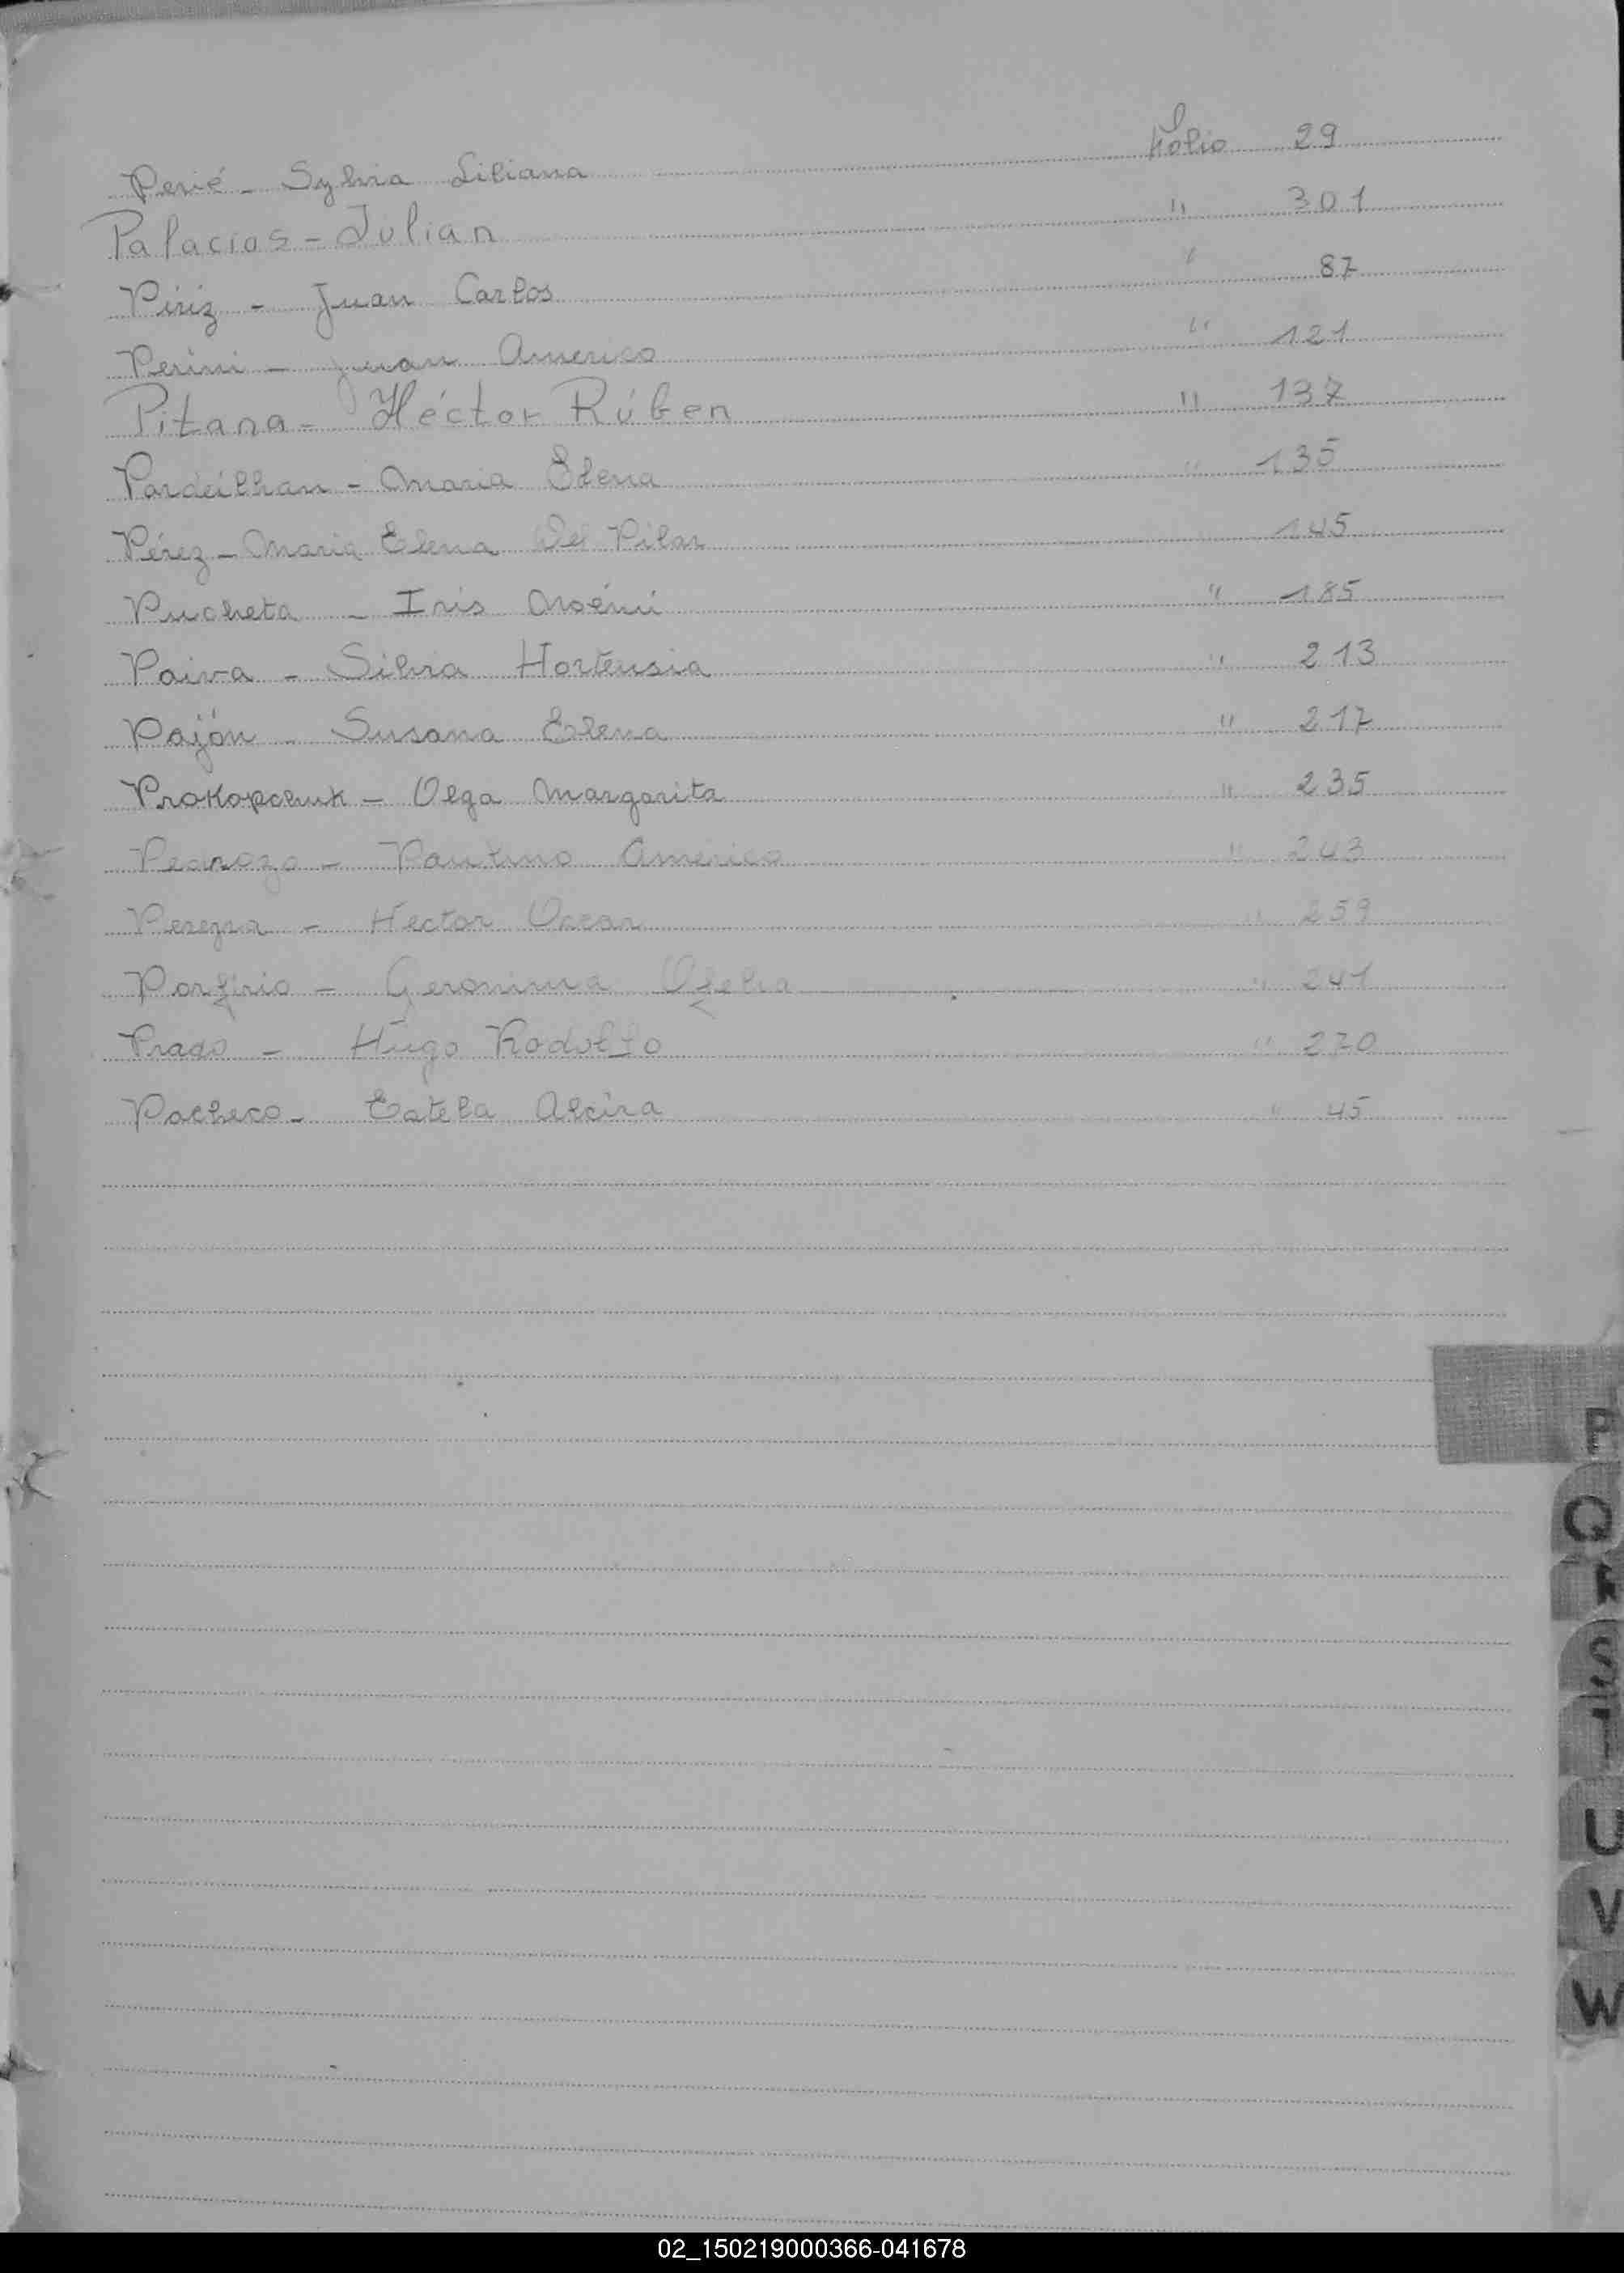 Perié - Sylvia Liliana Folio 29
Palacios - Julian " 301
Píriz - Juan Carlos " 87
Perini - Juan Americo " 121
Pitana - Héctor Rúben " 137
Pardeilhan - Maria Elena " 135
Pérez - Maria Elena Del Pilar 145
Pucheta - Iris Noémi " 185
Paiva - Silvia Hortensia " 213
Pajón - Susana Elena " 217
Prokopchuk - Olga Margarita " 235
Pedrozo - Paulino Americo " 243
Pereyra - Hector Oscar " 259
Porfirio - Geronima Ofelia " 241
Prado - Hugo Rodolfo " 270
Pacheco - Estela Alcira " 45
P
Q
R
S
T
U
V
W
02_150219000366-041678